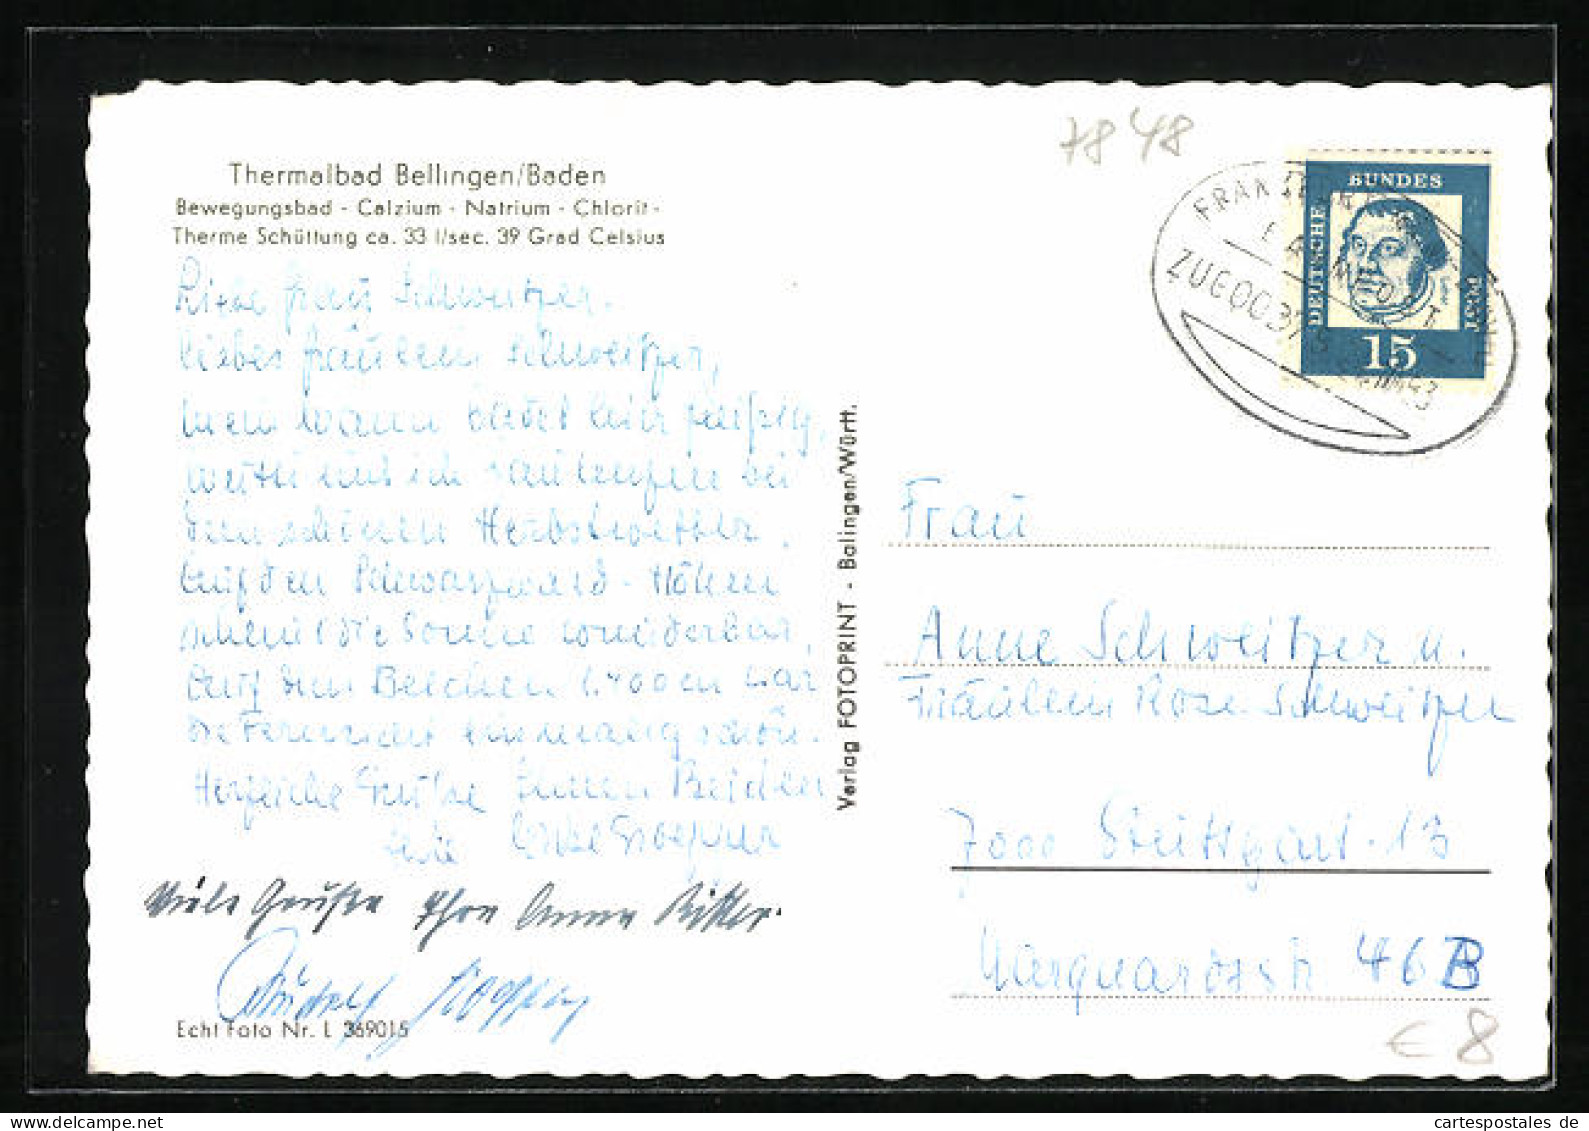 Thermalbad Bellingen/Baden
Bewegungsbad - Calzium - Natrium - Chlorit -
Therme Schüttung ca. 33 l/sec. 39 Grad Celsius
Liebe Frau Schweitzer.
liebes Fräulein Schweitzer,
mein Mann badet hier fleißig,
weil und ich faulenzen bei
dem schönen Herbstwetter.
Auf den Schwarzwald-Höhen
scheint die Sonne wunderbar,
Auf dem Belchen 1.400 m war
die Fernsicht einmalig schön.
Herzliche Grüße Ihnen Beiden
Ihre
Viele Grüße Ihre Anna Ritter.
Rudolf
Echt Foto Nr. L 369015
Verlag FOTOPRINT - Balingen/Württ.
7848
FRANKFURT
ZUG 00375
DEUTSCHE
BUNDES
POST
15
Frau
Anne Schweitzer u.
Fräulein Rose Schweitzer
7000 Stuttgart-13
Marquardtstr 46 B
€ 8
cartespostales de